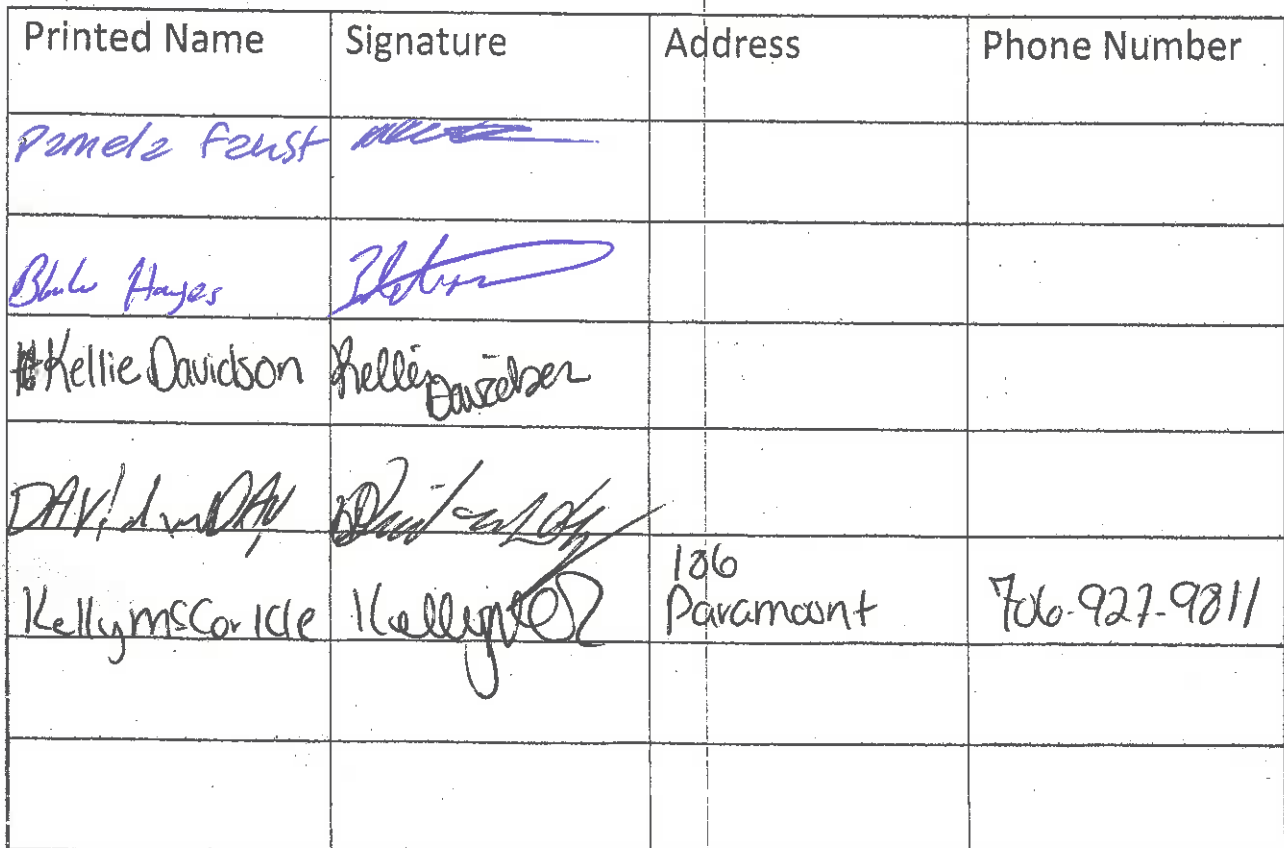 Printed Name Signature Address Phone Number
Pamela Faust
Hayes
Kellie Davidson Kellie Davidson
DAVid m DAY
136
Kelly McCorkle Kelly Paramount 706-927-9811